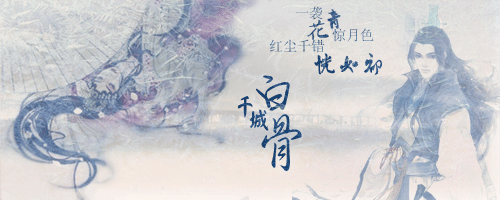 一袭青花惊月色
红尘千错恍如初
千城白骨